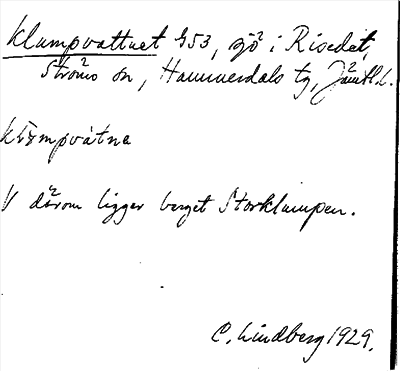 Klumpvattnet G53, sjö i Risedet,
Ströms sn, Hammerdals tg, Jämtl.l.
klumpvátne
V därom ligger berget Storklumpen.
C. Lindberg 1929.